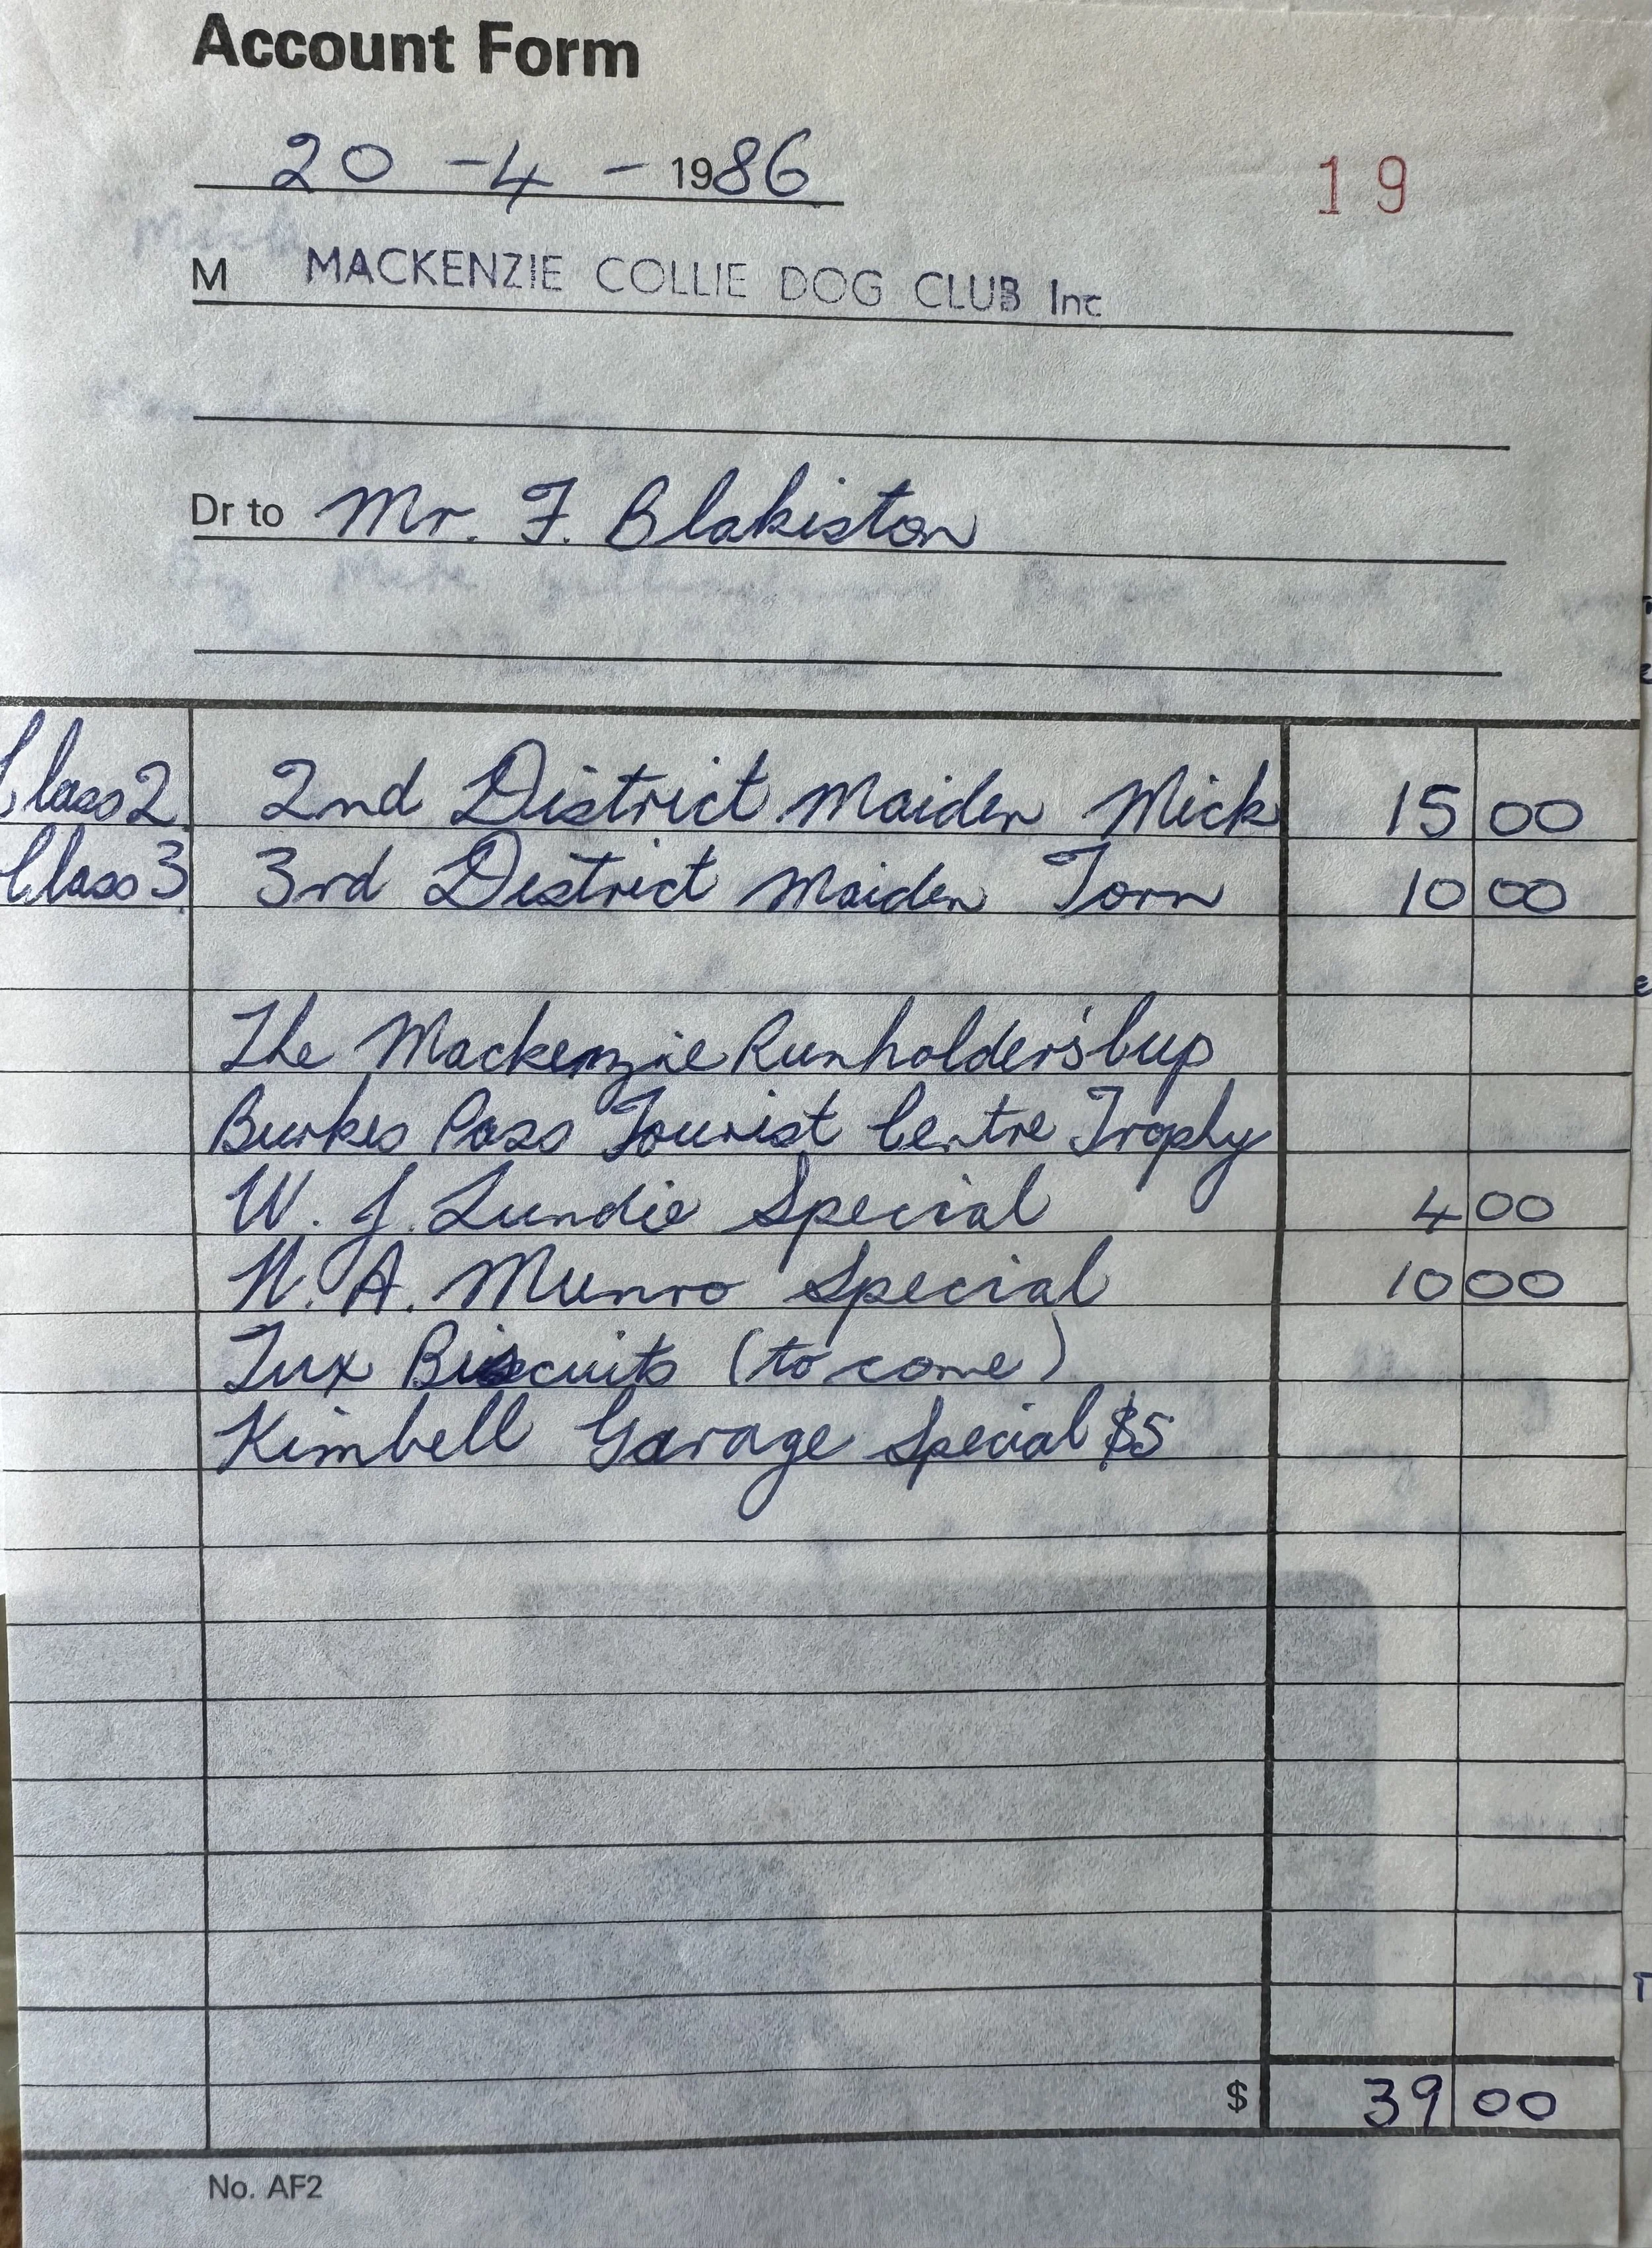 Account Form
20 - 4 - 1986
19
M MACKENZIE COLLIE DOG CLUB Inc
Dr to Mr. F. Blakiston
Class 2 2nd District Maiden Mick 15 00
Class 3 3rd District Maiden Torn 10 00
The Mackenzie Runholders' Cup
Burkes Pass Tourist Centre Trophy
W. J. Lundie Special 4 00
N. A. Munro Special 10 00
Tux Biscuits (to come)
Kimbell Garage Special $5
$ 39 00
No. AF2